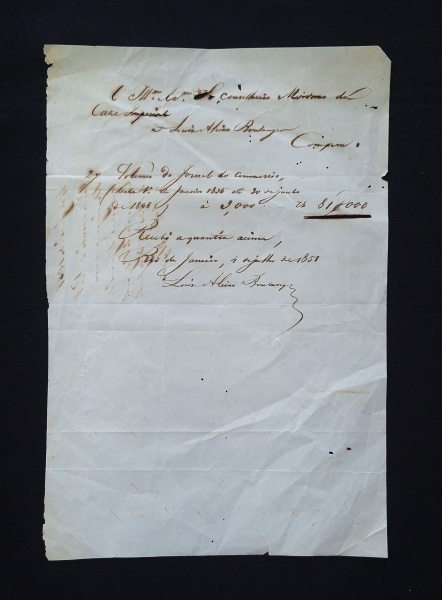 O Illmo. Exmo. Sr. conselheiro Mordomo da
Caza Imperial
a Luis Aleixo Boulanger
Comprou
27 Volumes do Jornal do commercio,
desde 1º. de Janeiro 1836 até 30 de junho
de 1848 à 3,000 rs 81,000
Recebi a quantia acima,
Rio de Janeiro, 4 de julho de 1851
Luis Aleixo Boulanger